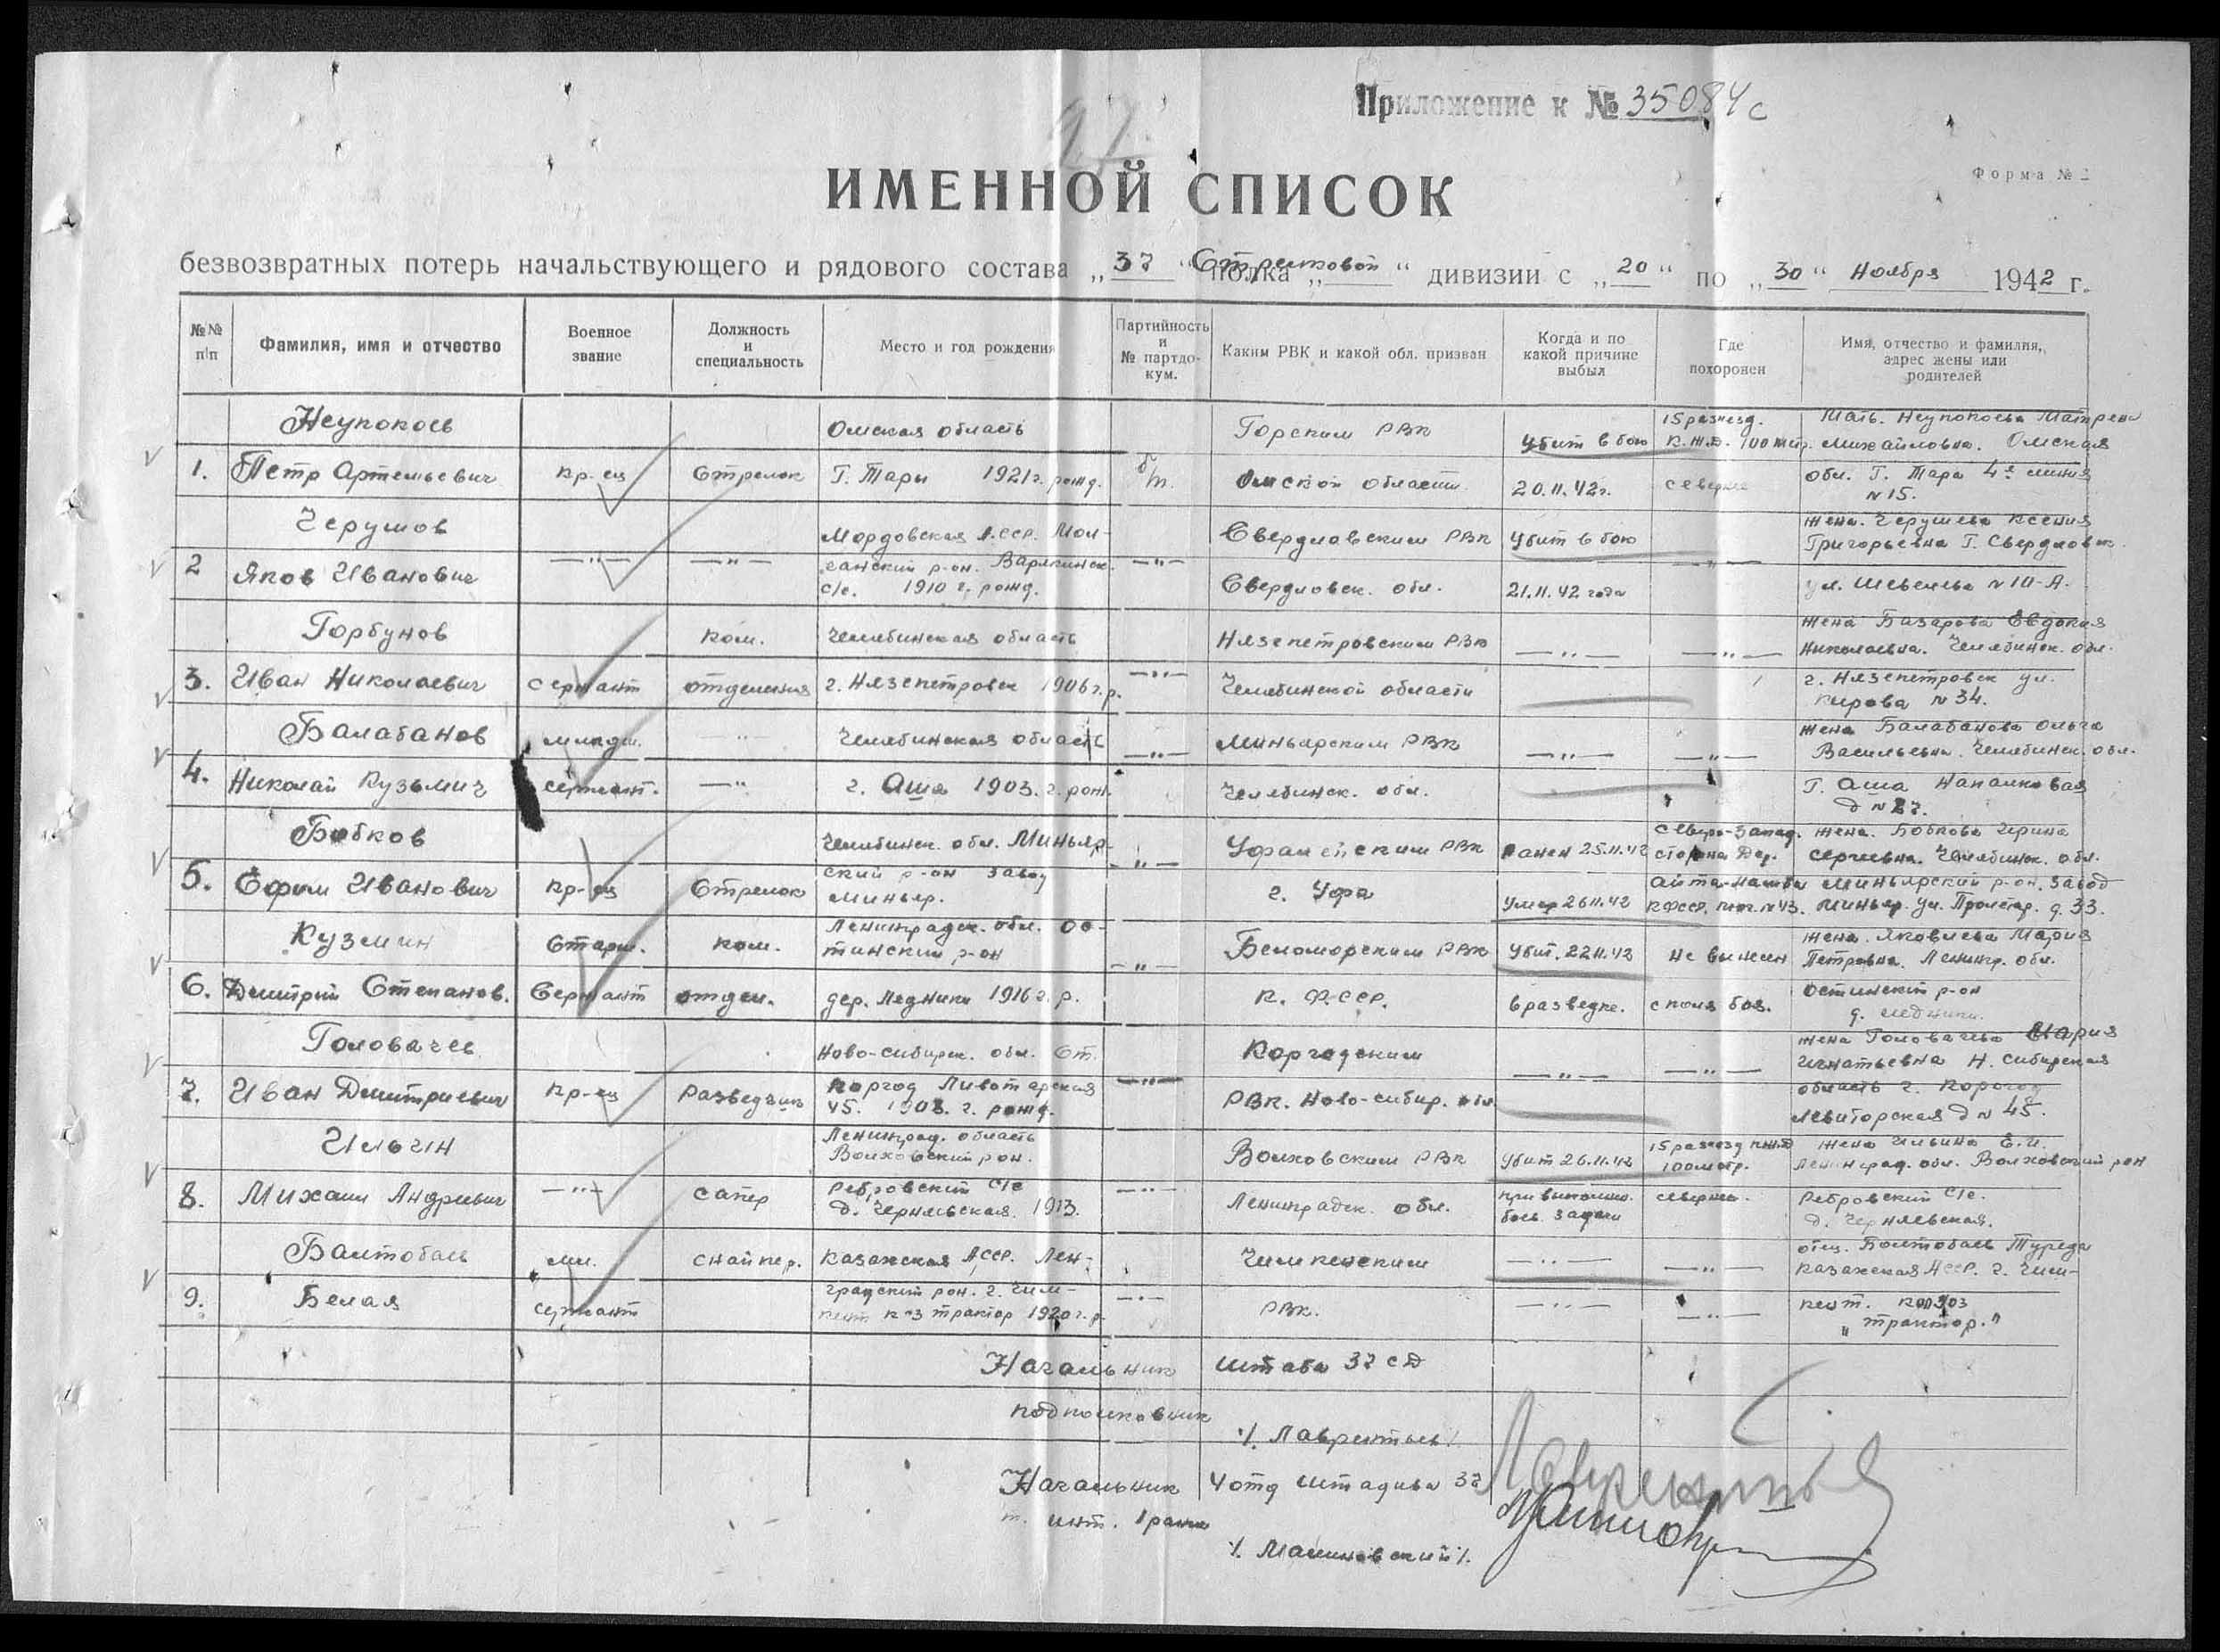 Приложение к № 35084с
27
ИМЕННОЙ СПИСОК
Форма №
безвозвратных потерь начальствующего и рядового состава „37 Стрелковой“ полка „ “ дивизии с „20“ по „30“ Ноября 1942 г.
№№ п/п
Фамилия, имя и отчество
Военное звание
Должность и специальность
Место и год рождения
Партийность и № партдокум.
Каким РВК и какой обл. призван
Когда и по какой причине выбыл
Где похоронен
Имя, отчество и фамилия, адрес жены или родителей
1. Неупокоев
Петр Артемьевич
Кр-ец
Стрелок
Омская область
Г. Тары 1921г. рожд.
б/п.
Горским РВК
Омской области
Убит в бою
20.11.42г.
15 разъезд.
К.Ж.Д. 100 мтр.
севернее
Мать. Неупокоева Матрена
Михайловна. Омская
обл. Г. Тара 4я линия
№15.
2 Черушов
Яков Иванович
—"—
—"—
Мордовская А.ССР. Мол-
с/с. 1910 г. рожд.
—"—
Свердлавским РВК
Свердловск. обл.
Убит в бою
21.11.42 года
—"—
Жена. Черушева Ксения
Григорьевна Г. Свердловск.
№ 10-А.
3. Горбунов
Иван Николаевич
Сержант
Ком.
отделения
Челябинская область
г. Нязепетровск 1906г.р.
—"—
Нязепетровским РВК
Челябинской области
—"—
—"—
Жена Базарова Евдокия
Николаевна. Челябинск. обл.
г. Нязепетровск ул.
Кирова №34.
4. Балабанов
Николай Кузьмич
младш.
сержант.
—"
Челябинская область
г. Аша 1903. г. рож.
—"—
Миньярским РВК
Челябинск. обл.
—"—
—"—
Жена Балабанова Ольга
Васильевна. Челябинск. обл.
Г. Аша
5. Бобков
Ефим Иванович
Кр-ец
Стрелок
Челябинск. обл. Миньяр-
ский р-он завод
Миньяр.
—"—
г. Уфа
Ранен 25.11.42
Умер 26.11.42
Северо-запад.
сторона дер.
Жена. Бобкова Ирина
Сергеевна. Челябинск. обл.
Миньярский р-он. завод
Миньяр. Ул. Пролетар. д. 33.
6. Кузмин
Дмитрий Степанов.
Старш.
Сержант
Ком.
отдел.
Ленинградск. обл. Ос-
тинский р-он
дер. Ледники 1916г.р.
—"—
Беломорским РВК
К. Ф.ССР.
Убит. 22.11.42
в разведке.
Не вынесен
с поля боя.
Жена. Яковлева Мария
Петровна. Ленингр. обл.
Остинский р-он
д. Ледники.
7. Головачев
Иван Дмитриевич
Кр-ец
Разведчик
Ново-сибирск. обл. Ст.
45. 1908. г. рожд.
—"—
Коргодским
РВК. Ново-сибир. обл.
—"—
—"—
Жена Головачева Мария
Игнатьевна Н. Сибирская
область
д № 45.
8. Ильин
Михаил Андреевич
—"—
сапер
Ленинград. область
Волховский рон.
Ребровский с/с
д. Чернявская. 1913.
—"—
Волховским РВК
Ленинградск. обл.
Убит 26.11.42
при выполно.
боев. задачи
15 разъезд КЖД
100 мтр.
севернее.
Жена Ильина Е.И.
Ленинград. обл. Волховский рон
Ребровский с/с.
д. Чернявская.
9. Балтобаев
Белая
мл.
сержант
снайпер.
Казахская АССР. Лен-
градский рон. г. Чим-
кент к-з трактор 1920г.р.
—"—
Чимкенским
РВК.
—"—
—"—
—"—
—"—
отец. Балтобаев Туреда
Казахская АССР. г. Чим-
кент. колхоз
„трактор."
Начальник штаба 37 сд
подполковник
/. Лаврентьев/.
Начальник 4 отд штадива 37
т. инт. 1 ранга
/. Малиновский/.